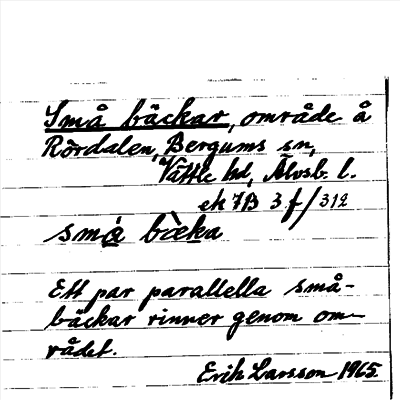 Små bäckar, område å
Rördalen, Bergums sn,
Vättle hd, Älvsb. l.
ek 7B 3 f/312
små bècka
Ett par parallella små-
bäckar rinner genom om-
rådet.
Erik Larsson 1965.